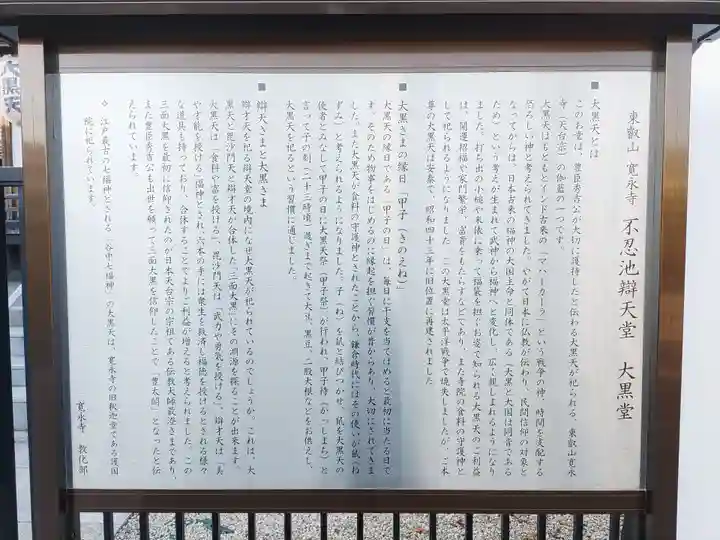 東叡山 寛永寺 不忍池辯天堂 大黒堂
このお堂は、豊臣秀吉公が大切に護持したと伝わる大黒天が祀られる、東叡山寛永
寺(天台宗)の伽藍の一つです。
■大黒天とは
大黒天はもともとインド古来の「マハーカーラ」という戦争の神、時間を支配する
恐ろしい神と考えられてきました。やがて日本に仏教が伝わり、民間信仰の対象と
なってからは、日本古来の福神の大国主命と同体である(大黒と大国は同音である
ため)という考えが生まれて武神から福神へと変化し、広く親しまれるようになり
ました。打ち出の小槌や米俵に乗って福袋を担ぐお姿で知られる大黒天のご利益
は、開運招福や家門繁栄、富貴をもたらすなどであり、また寺院の食料の守護神と
して祀られるようになりました。この大黒堂は太平洋戦争で焼失しましたが、ご本
尊の大黒天は安泰で、昭和四十三年に旧位置に再建されました
■大黒さまの縁日「甲子(きのえね)」
大黒天の縁日である「甲子の日」は、毎日に干支を当てはめると最初に当たる日で
す。そのため物事をはじめるのに縁起を担ぐ習慣が昔からあり、大切にされてきま
した。また大黒天が食料の守護神とされたことから、鎌倉時代にはその使いが鼠(ね
ずみ)と考えられるようになりました。子(ね)を鼠と結びつかせ、鼠を大黒天の
使者とみなして甲子の日に大黒天祭(甲子祭)が行われ、甲子待(かっしまち)と
言って子の刻(二十三時頃)過ぎまで起きて大豆、黒豆、二股大根などをお供えし、
大黒天を祀るという習慣に通じました。
■辯天さまと大黒さま
辯才天を祀る辯天堂の境内になぜ大黒天が祀られているのでしょうか。これは、大
黒天と毘沙門天と辯才天が合体した「三面大黒」にその淵源を探ることが出来ます。
大黒天は「食料や富を授ける」、毘沙門天は「武力や勇気を授ける」、辯才天は「美
や才能を授ける」福神とされ、六本の手には衆生を救済し福徳を授けるとされる様々
な道具を持つており、合体することでよりご利益が増えると考えられました。この
三面大黒を最初に信仰されたのが日本天台宗の宗祖である伝教大師最澄さまであり、
また豊臣秀吉公も出世を願って三面大黒を信仰したことで「豊太閤」となったと伝
えられています。
◇ 江戸最古の七福神とされる「谷中七福神」の大黒天は、寛永寺の旧釈迦堂である護国
院に祀られています。
寛永寺 教化部
大黒天